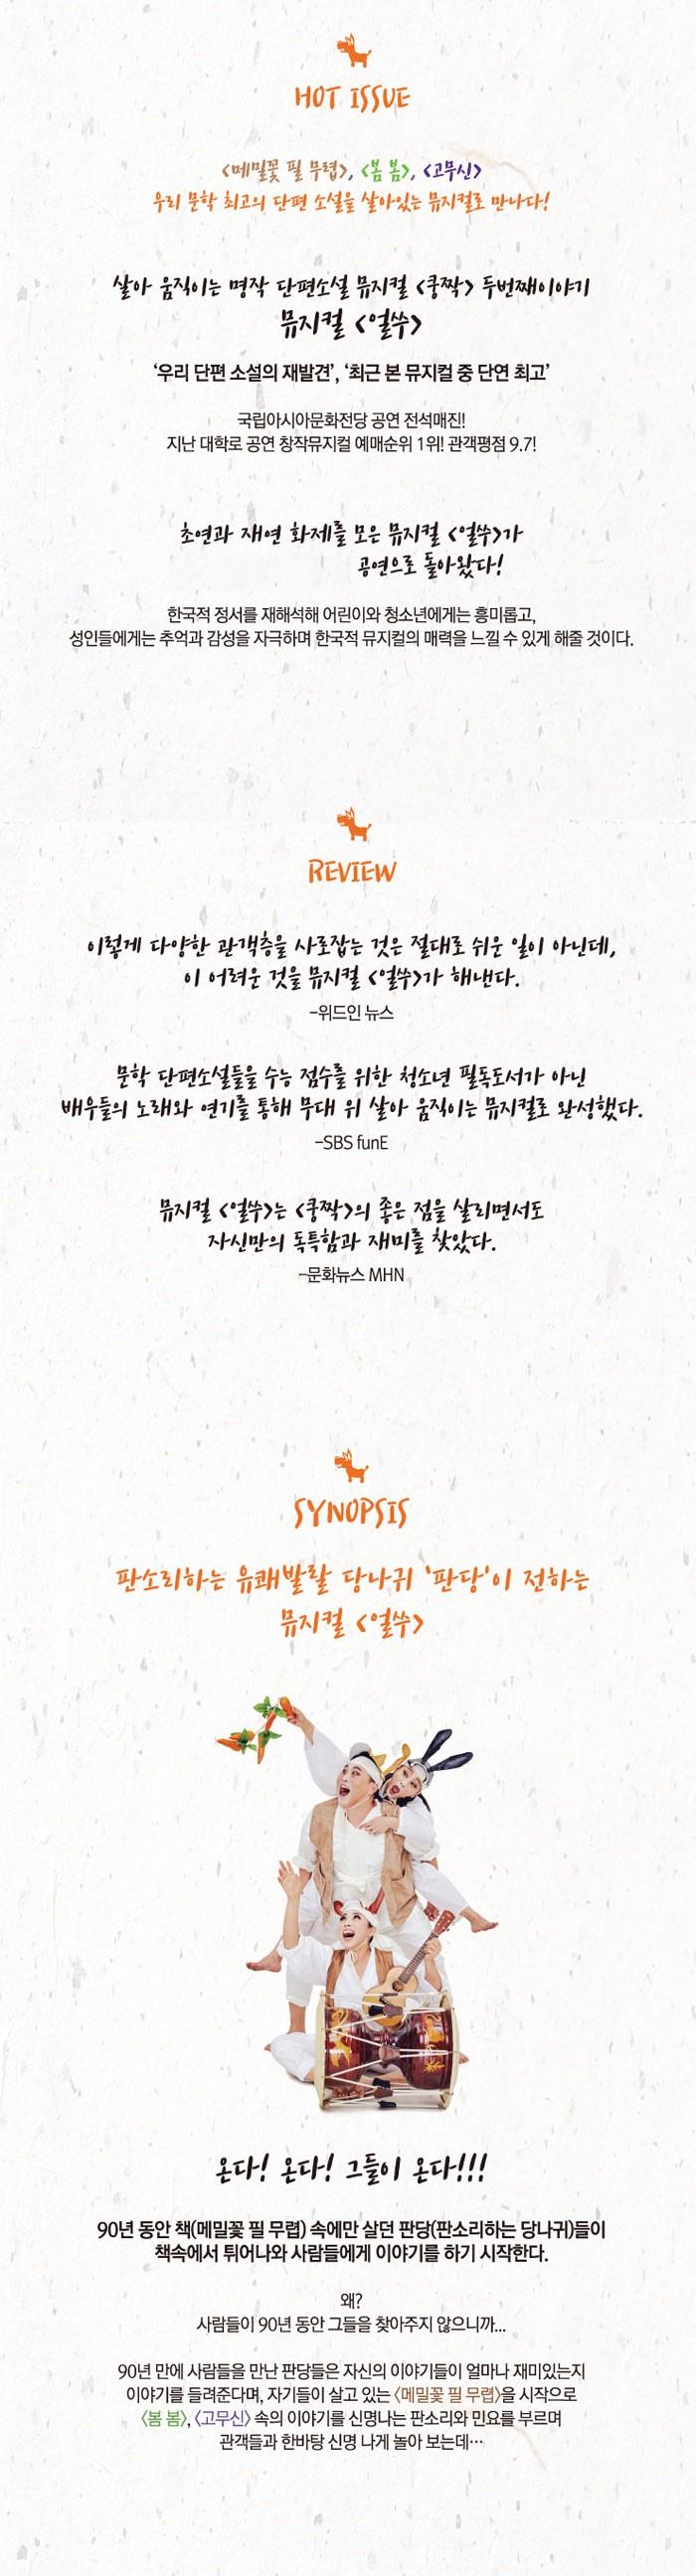 HOT ISSUE
<메밀꽃 필 무렵>, <봄 봄>, <고무신>
우리 문학 최고의 단편 소설을 살아있는 뮤지컬로 만나다!
살아 움직이는 명작 단편소설 뮤지컬 <쿵짝> 두번째이야기
뮤지컬 <얼쑤>
‘우리 단편 소설의 재발견’, ‘최근 본 뮤지컬 중 단연 최고’
국립아시아문화전당 공연 전석매진!
지난 대학로 공연 창작뮤지컬 예매순위 1위! 관객평점 9.7!
초연과 재연 화제를 모은 뮤지컬 <얼쑤>가
공연으로 돌아왔다!
한국적 정서를 재해석해 어린이와 청소년에게는 흥미롭고,
성인들에게는 추억과 감성을 자극하며 한국적 뮤지컬의 매력을 느낄 수 있게 해줄 것이다.
REVIEW
이렇게 다양한 관객층을 사로잡는 것은 절대로 쉬운 일이 아닌데,
이 어려운 것을 뮤지컬 <얼쑤>가 해낸다.
-위드인 뉴스
문학 단편소설들을 수능 점수를 위한 청소년 필독도서가 아닌
배우들의 노래와 연기를 통해 무대 위 살아 움직이는 뮤지컬로 완성했다.
-SBS funE
뮤지컬 <얼쑤>는 <쿵짝>의 좋은 점을 살리면서도
자신만의 독특함과 재미를 찾았다.
-문화뉴스 MHN
SYNOPSIS
판소리하는 유쾌발랄 당나귀 '판당'이 전하는
뮤지컬 <얼쑤>
온다! 온다! 그들이 온다!!!
90년 동안 책(메밀꽃 필 무렵) 속에만 살던 판당(판소리하는 당나귀)들이
책속에서 튀어나와 사람들에게 이야기를 하기 시작한다.
왜?
사람들이 90년 동안 그들을 찾아주지 않으니까...
90년 만에 사람들을 만난 판당들은 자신의 이야기들이 얼마나 재미있는지
이야기를 들려준다며, 자기들이 살고 있는 <메밀꽃 필 무렵>을 시작으로
<봄 봄>, <고무신> 속의 이야기를 신명나는 판소리와 민요를 부르며
관객들과 한바탕 신명 나게 놀아 보는데…